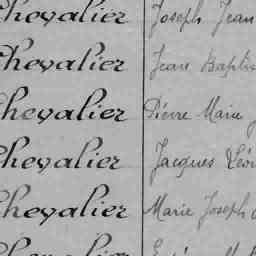 Chevalier Joseph Jean
Chevalier Jean Baptis
Chevalier Pierre Marie J
Chevalier Jacques Léon
Chevalier Marie Joseph
Chevalier